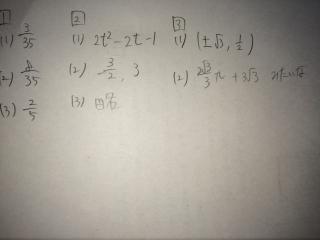 1
(1) 3/35
(2) /35
(3) 2/5
2
(1) 2t²-2t-1
(2) -3/2, 3
(3)
3
(1) (±√3, 1/2)
(2) 2√3/3 π + 3√3